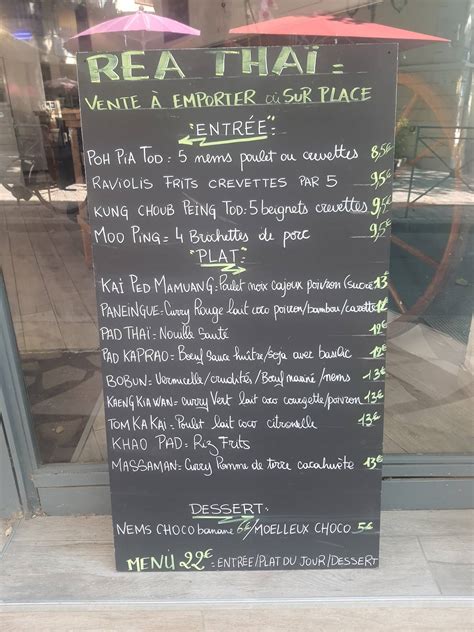 REA THAÏ =
VENTE À EMPORTER OÙ SUR PLACE
"ENTRÉE":
POH PIA TOD: 5 nems poulet ou crevettes 8,5€
RAVIOLIS FRITS CREVETTES PAR 5 9,5€
KUNG CHOUB PEING TOD: 5 beignets crevettes 9,5€
MOO PING = 4 Brochettes de porc 9,5€
"PLAT"
KAI PED MAMUANG: Poulet noix cajoux poivron (sucré 13€
PANEINGUE: Curry Rouge lait coco poivron/bambou/carotte
PAD THAÏ= Nouille Sauté 12€
PAD KAPRAO= Boeuf sauce huître/soja avec basilic 12€
BOBUN= Vermicelle/crudités/Boeuf mariné/nems 13€
KAENG KIAWAN= curry Vert lait coco courgette/poivron 13€
TOM KA KAI: Poulet lait coco citronelle 13€
KHAO PAD: Riz Frits
MASSAMAN= Curry Pomme de terre cacahuète 13€
DESSERT:
NEMS CHOCO banane 6€/MOELLEUX CHOCO 5€
MENU 22€=ENTRÉE/PLAT DU JOUR/DESSERT